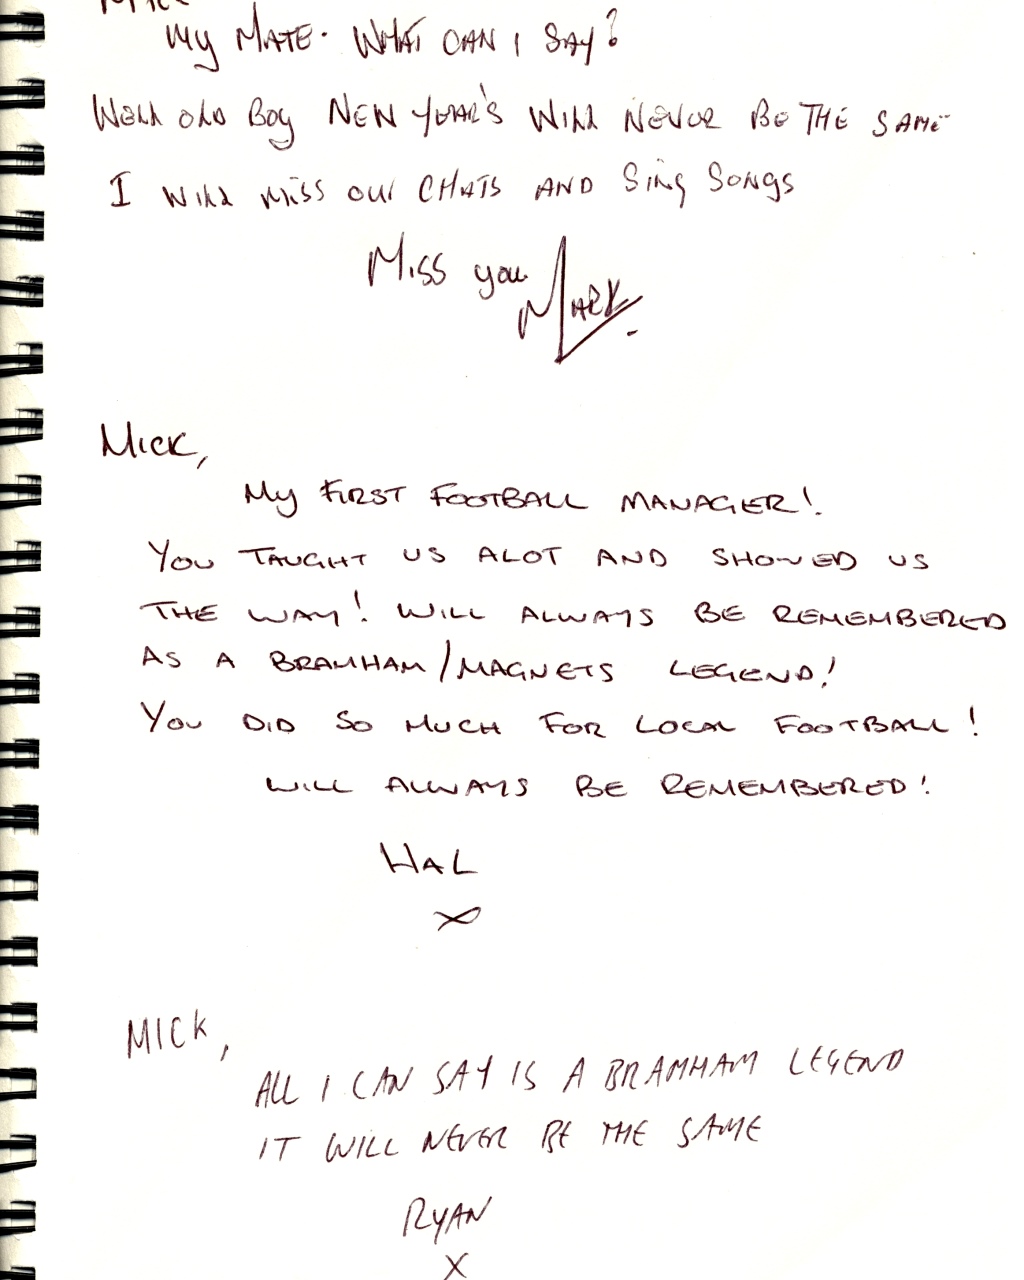 My MATE. WHAT CAN I SAY?
WELL OLD BOY NEW YEAR'S WILL NEVER BE THE SAME
I WILL MISS OUR CHATS AND SING SONGS
MISS you
MARK.
MICK,
My FIRST FOOTBALL MANAGER!
YOU TAUGHT US ALOT AND SHOWED US
THE WAY! WILL ALWAYS BE REMEMBERED
AS A BRAMHAM/MAGNETS LEGEND!
YOU DID SO MUCH FOR LOCAL FOOTBALL!
WILL ALWAYS BE REMEMBERED!
HAL
X
MICK,
ALL I CAN SAY IS A BRAMHAM LEGEND
IT WILL NEVER BE THE SAME
RYAN
X